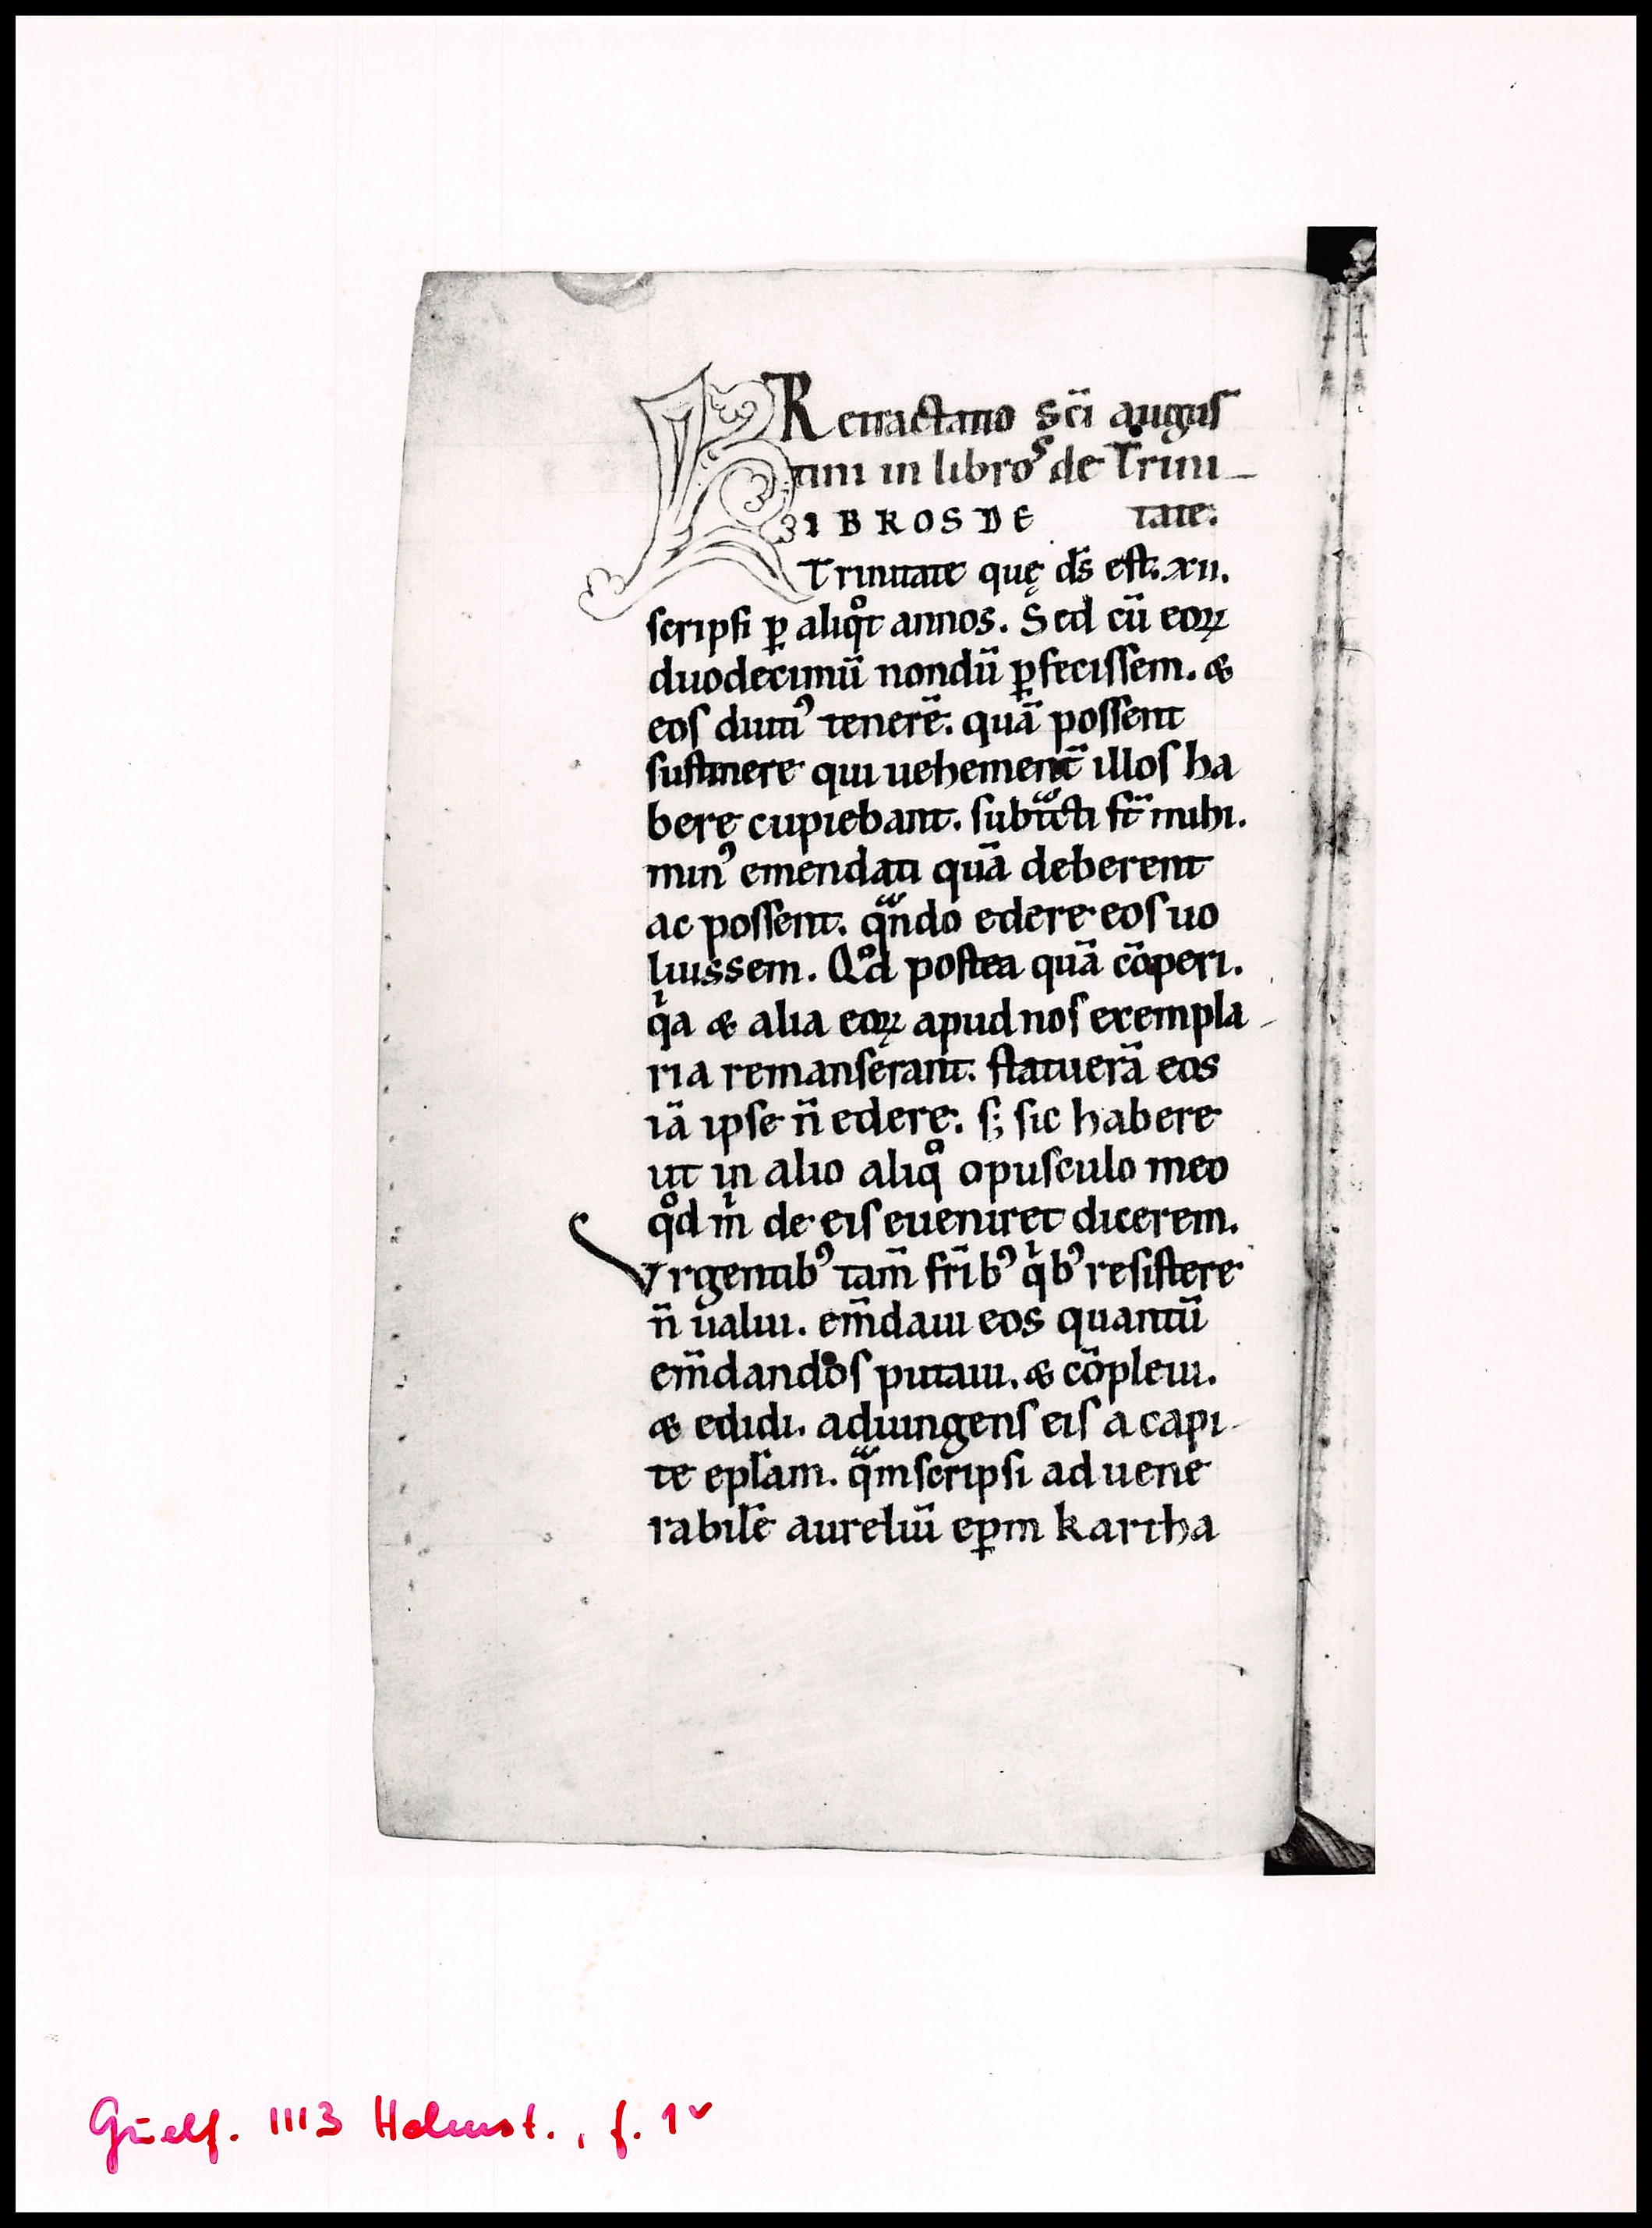 Retractatio sc̄i augus
tini in libroˢ de Trini-
LIBROS DE tate.
Trinitate quę d̄s est. xii.
scripsi ꝑ aliqͦt annos. Sed cū eoꝝ
duodecimū nondū ꝑfecissem. &
eos diutiꝰ tenerē. quā possent
sustinere qui uehement̄ illos ha
bere cupiebant. subtͣcti st̄ mihi.
minꝰ emendati quā deberent
ac possent. qͣndo edere eos uo
luissem. Qͦd postea quā cōperi.
qⁱa & alia eoꝝ apud nos exempla-
ria remanserant. statuerā eos
iā ipse n̄ edere. s; sic habere
ut in alio aliqͦ opusculo meo
qͦd mⁱ de eis eueniret dicerem.
Vrgentibꝰ tam̄ fr̄ibꝰ qⁱbꝰ resistere
n̄ ualui. em̄daui eos quantū
em̄dandos putaui. & cōpleui.
& edidi. adiungens eis a capi-
te epl̄am. qͣm scripsi ad uene
rabilē aureliū ep̄m kartha
Guelf. 1113 Helmst., f. 1v